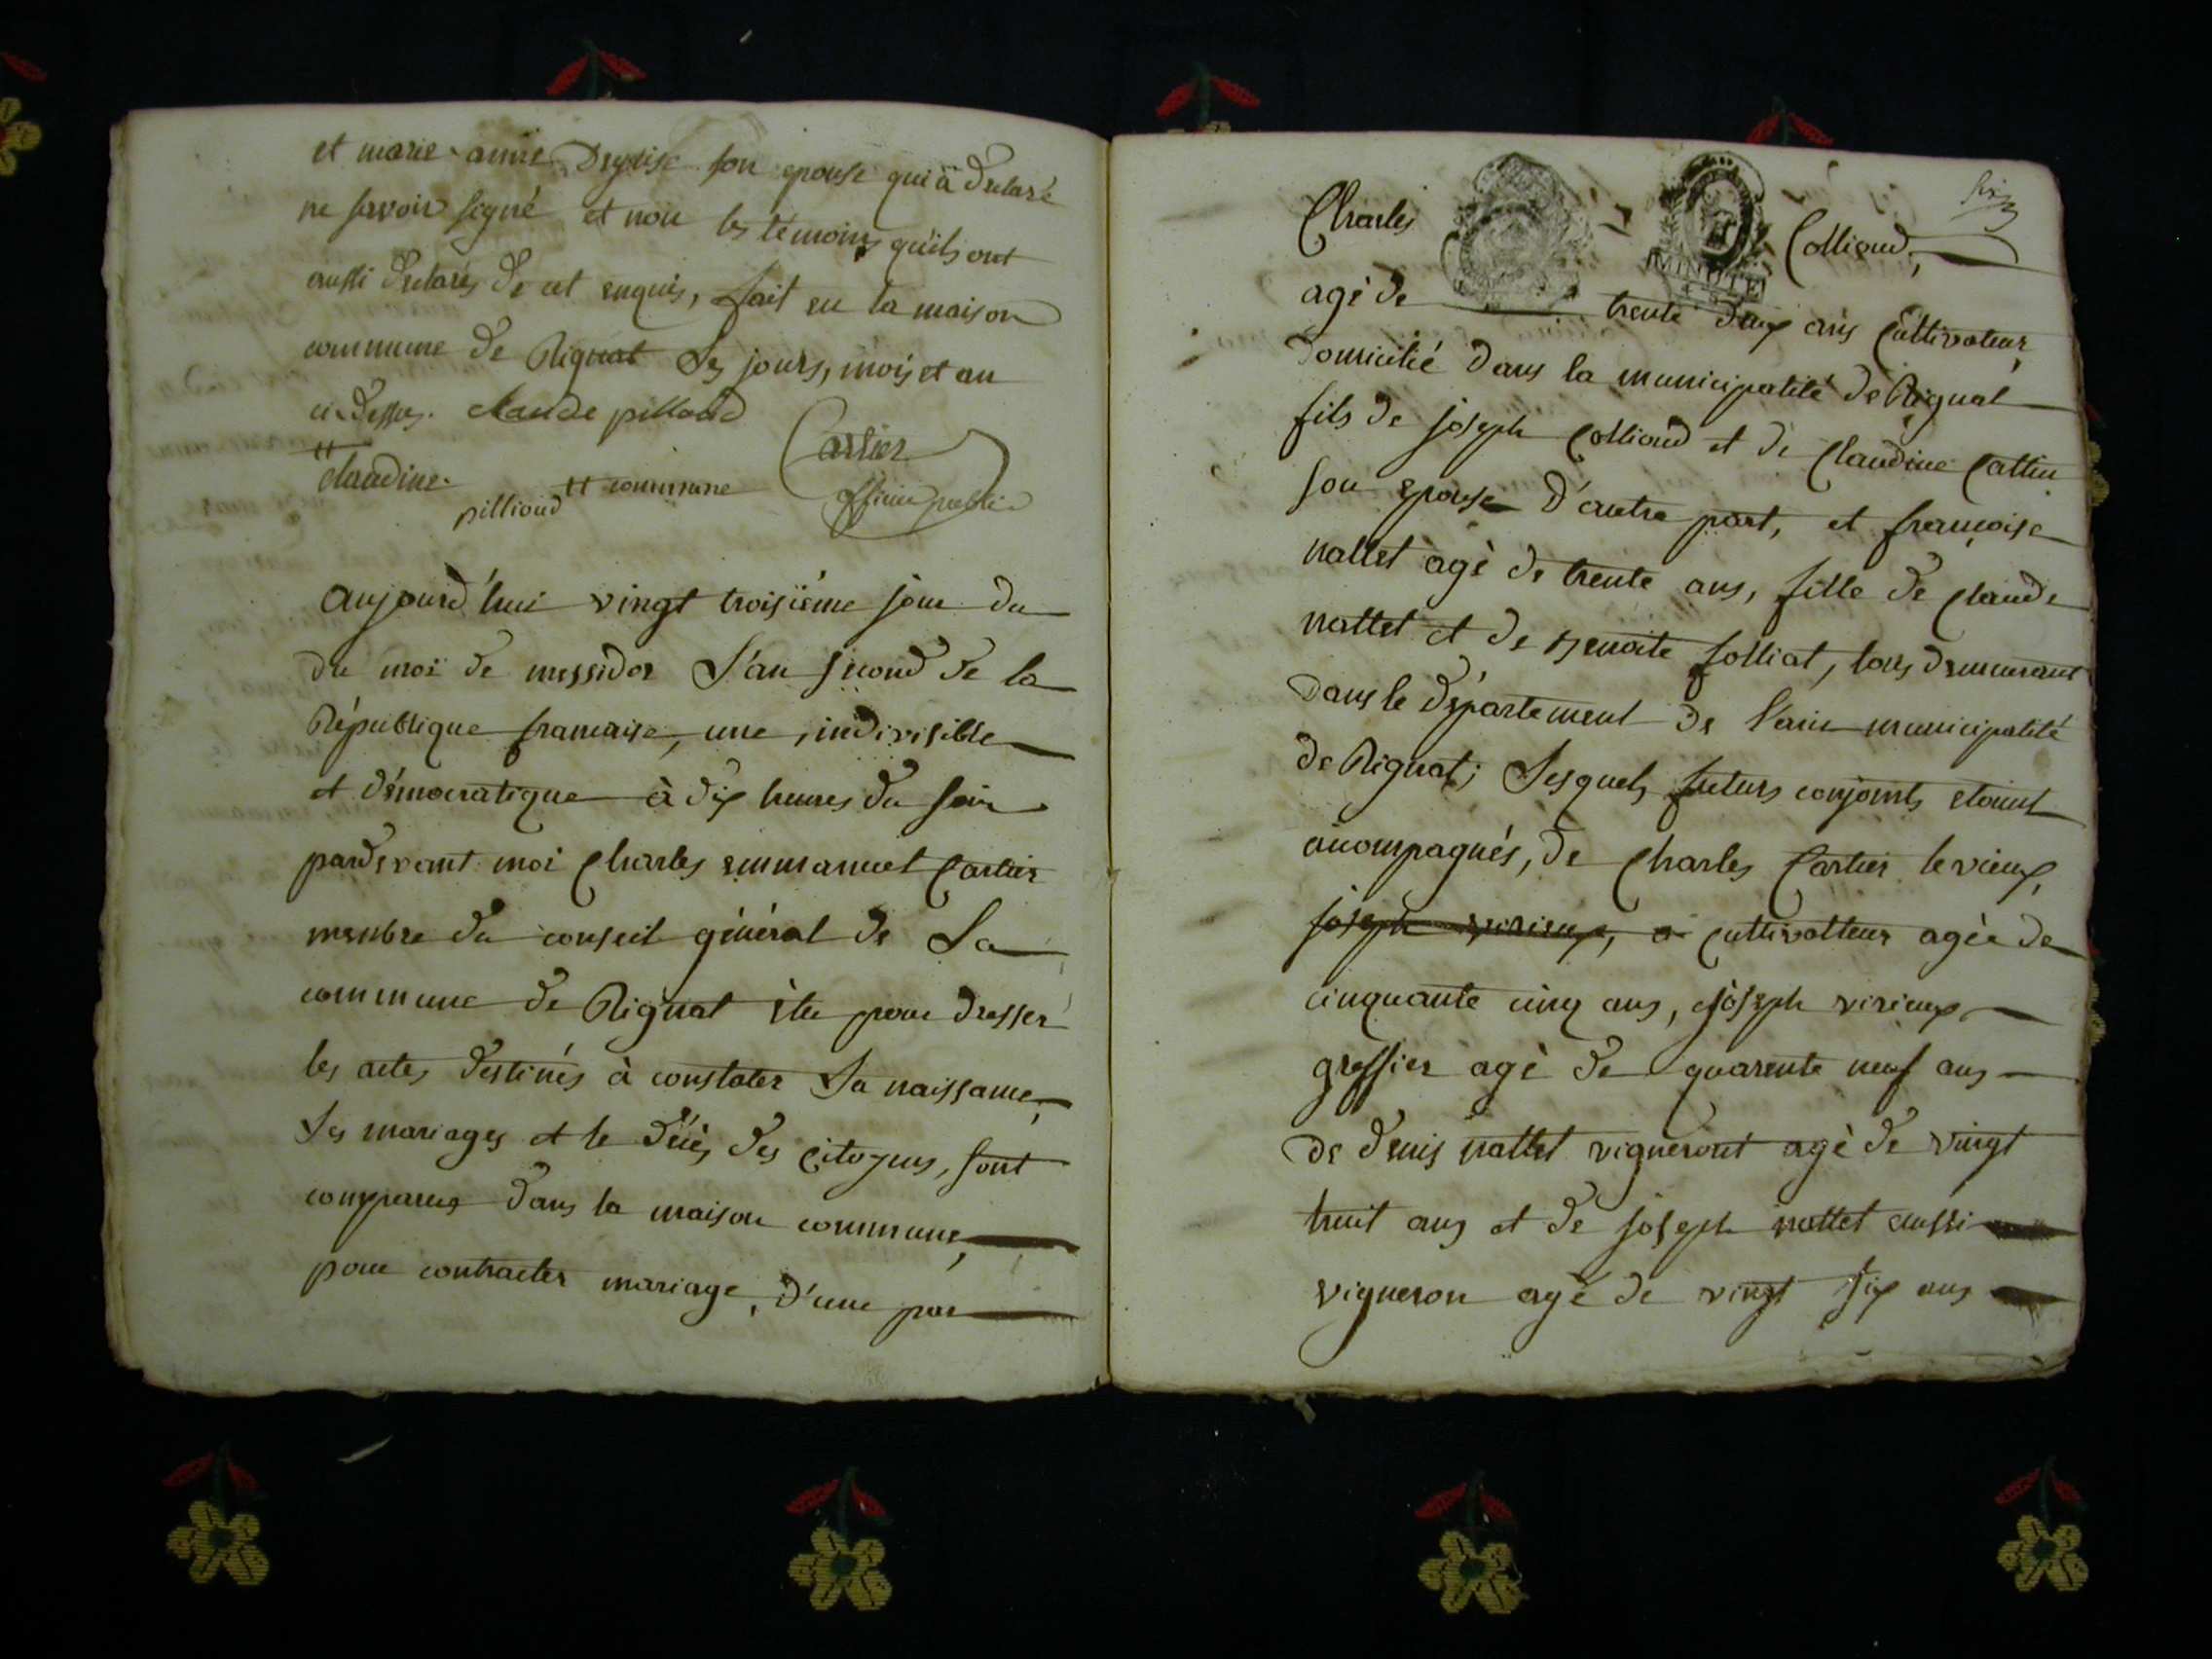 et marie anne Degrise son epouse qui à declaré
ne savoir signé et non les témoins qu'ils ont
aussi declarés de cet enquis, fait en la maison
commune de Rignat Les jours, mois et an
ci-dessus. claude pilloud
Cartier
claudine.
pillioud
commune
officier public
aujourd'hui vingt troisiéme jour du
du moi de messidor L'an second de la
République francaise, une, indivisible
et démocratique à dix heures du soir
pardevant moi Charles emmanuel Cartier
menbre du conseil général de La
commune de Rignat élu pour dresser
les actes destinés à constater La naissance,
Les mariages et le décès des Citoyens, sont
comparus dans la maison commune,
pour contracter mariage, d'une par
six
Charles Collioud,
MINUTE
agé de trente deux ans Cultivateur,
domicilié dans la municipalité de Rignat
fils de joseph Collioud et de Claudine Cattin
son epouse D'autre part, et francoise
nallet agé de trente ans, fille de Claude
nallet et de Benoite folliat, tous demeurant
dans le département de l'ain municipalité
de Rignat; Lesquels futurs conjoints etoient
accompagnés, de Charles Cartier le vieux,
joseph virieux, a Cultivatteur agée de
cinquante cinq ans, joseph virieux
greffier agé de quarente neuf ans
de denis nallet vigneront agé de vingt
huit ans et de joseph nallet aussi
vigneron agé de vingt six ans